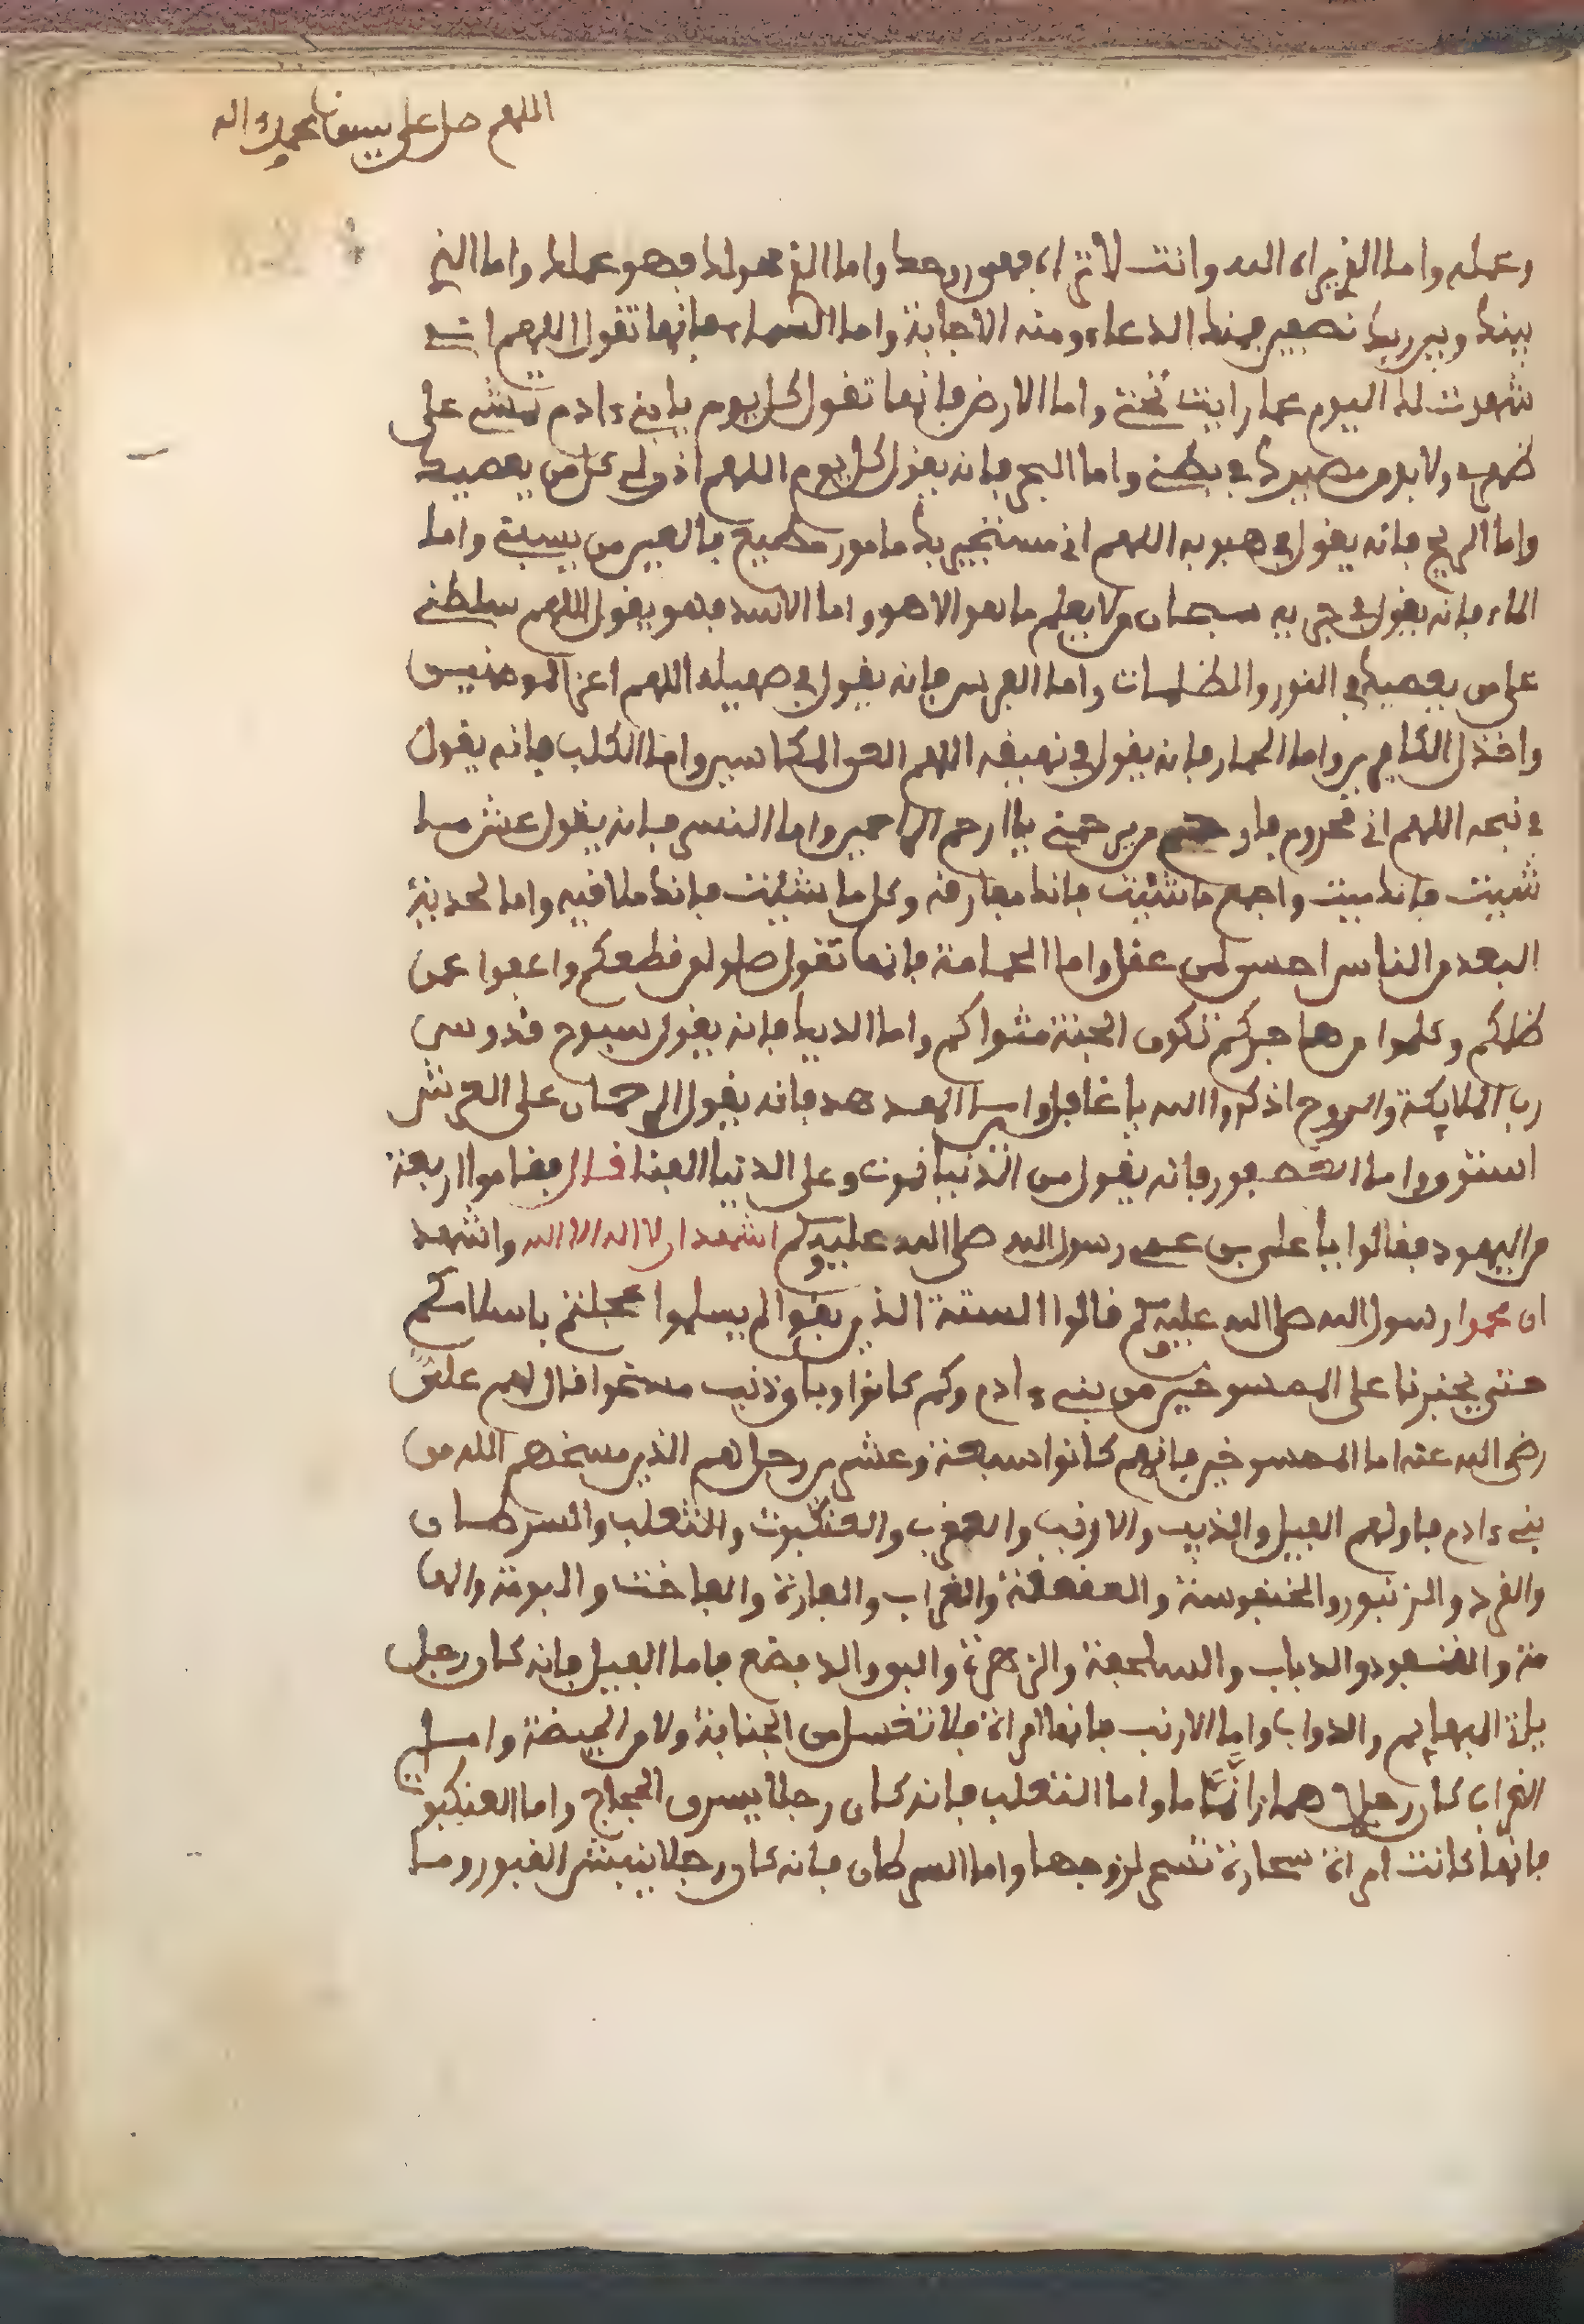 اللهم صل على سيدنا محمد واله
وعمله واما الذي يراه الله وانت لا تراه فهو روحك واما الذي هو لك فهو عملك واما الذي
بينك وبين ربك نصفين فمنك الدعاء ومنه الاجابة واما السماء فانها تقول اللهم اني
شهدت له اليوم بما رايت تحتي واما الارض فانها تقول كل يوم يا بني ءادم تمشي على
ظهري ولا بد من مصيرك في بطني واما البحر فانه يقول كل يوم اللهم اذن لي على من يعصيك
واما الريح فانه يقول في هبوبه اللهم اني مستجير بك مامور مطيع فالعير من يسبني واما
الماء فانه يقول في جريه سبحان من لا يعلم ما هو الا هو واما الاسد فهو يقول اللهم سلطني
على من يعصيك في النور والظلمات واما الفرس فانه يقول في صهيله اللهم اعز المومنين
واخذل الكافرين واما الحمار فانه يقول في نهيقه اللهم العن المكاسين واما الكلب فانه يقول
في نبحه اللهم اني محروم فارحم من يرحمني يا ارحم الراحمين واما النسر فانه يقول عش ما
شيت فانك ميت واجمع ما شيت فانك مفارقه وكل ما شيت فانك ملاقيه واما الحدية
البعد من الناس احسن لمن عقل واما الحمامة فانها تقول صلوا من قطعكم واعفوا عمن
ظلمكم وكلموا من هاجركم تكون الجنة مثواكم واما الديك فانه يقول سبوح قدوس
رب الملايكة والروح اذكروا الله يا غافلين واما الهدهد فانه يقول الرحمان على العرش
استوى واما العصفور فانه يقول من الذنيا نموت وعلى الدنيا العفا قال فقاموا اربعة
من اليهود فقالوا يا علي بن عم رسول الله صلى الله عليه وسلم اشهد ان لا اله الا الله واشهد
ان محمدا رسول الله صلى الله عليه وسلم قالوا الستة الذين بقوا لم يسلموا عجلتم باسلامكم
حتى يخبرنا على الممسوخين من بني ءادم وكم كانوا وباي ذنب مسخوا فقال لهم علي
رضي الله عنه اما الممسوخين فانهم كانوا سبعة وعشرين رجل هم الذين مسخهم الله من
بني ءادم فاولهم الفيل والذيب والارنب والعقرب والعنكبوت والثعلب والسرطان
والقرد والزنبور والخنفوسة والعقعقة والغراب والفارة والفاخت والبومة والها
مة والقنفود والدباب والسلحفة والزهرة والبو والدفضع فاما الفيل فانه كان رجل
يلة البهايم والدواب واما الارنب فانها امراة فلا تغسل من الجنابة ولا من الحيضة واما
الغراب كان رجلا همازا نماما واما الثعلب فانه كان رجلا يسرق الحجاج واما العنكبوت
فانها كانت امراة سحارة تسحر لزوجها واما السرطان فانه كان رجلا ينبش القبور وما